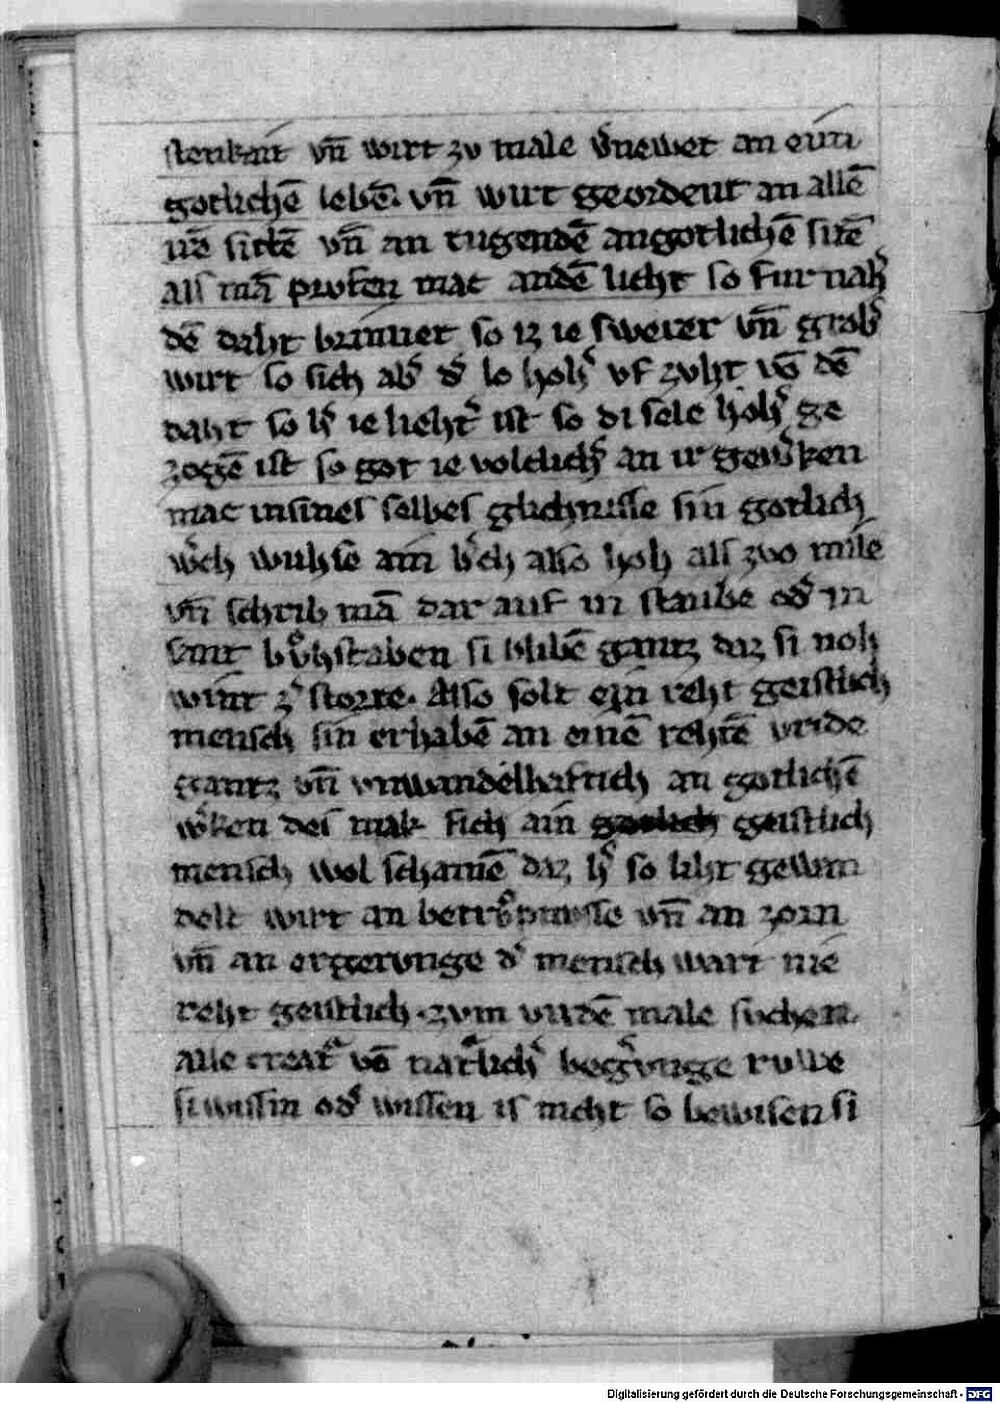 stenkait vn̄ wirt zv male v͛newet an eím
gotlichē lebē. vn̄ wirt geordent an allē
irē sittē vn̄ an tugendē an gotlichē sitē
als mā prvfen mac an dē liht so fur nah͛
dē daht brinnet so iz ie swerer vn̄ grob͛
wirt so sich ab͛ d͛ lo hoh͛ vf zvht vō dē
daht so h͛ ie lieht͛ ist so di sele hoh͛ ge
zogē ist so got ie volclich͛ an ir gew͛ken
mac in sines selbes glichnisse sin gotlich
w͛ch wuhse ain b͛ch also hoh als zwo mile
vn̄ schrib mā dar auf in staube od͛ in
sant bvͦhstaben si blibē gantz daz si noh
wint z͛storte. Also solt ein reht geistlich
mensch sin erhabē an einē rehtē vride
gantz vn̄ vnwandelhaftich an gotlichē
w͛ken des mak sich ain geistlich
mensch wol schamē daz h͛ so liht gewan
delt wirt an betrvͦpnusse vn̄ an zorn
vn̄ an ergerunge d͛ mensch wart nie
reht geistlich. zvm virdē male suchen
alle creatᵘr vō natᵘrlich͛ beg͛vnge ruwe
si wissin od͛ wissen is niht so bewisen si
Digitalisierung gefördert durch die Deutsche Forschungsgemeinschaft - DFG